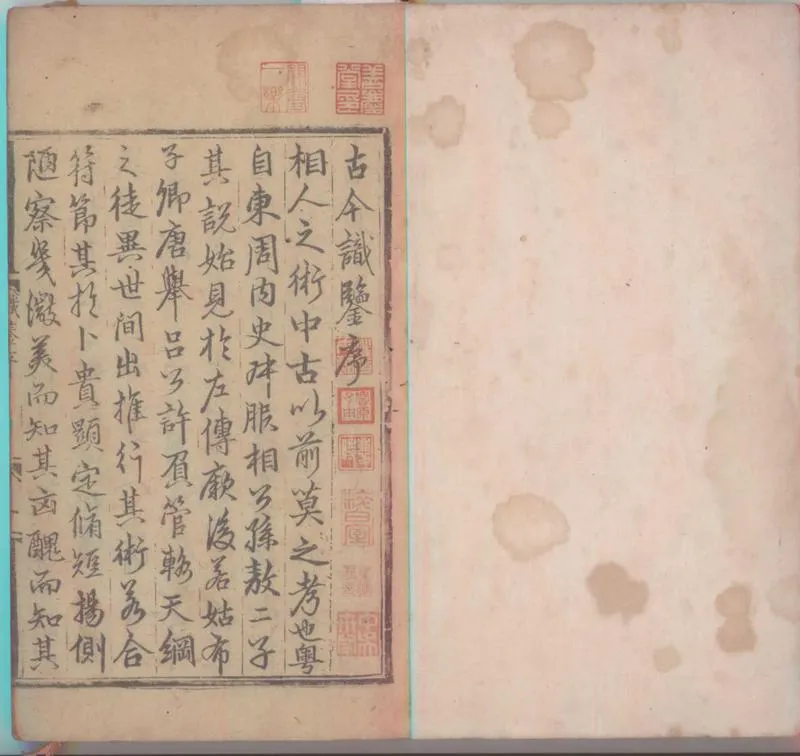 古今識鑒序
相人之術中古以前莫之考也粤
自東周内史叔服相公孫敖二子
其說始見於左傳厥後若姑布
子卿唐舉呂公許負管輅天綱
之徒異世間出推行其術若合
符節其於卜貴顯定脩短揚側
陋察幾微美而知其凶醜而知其